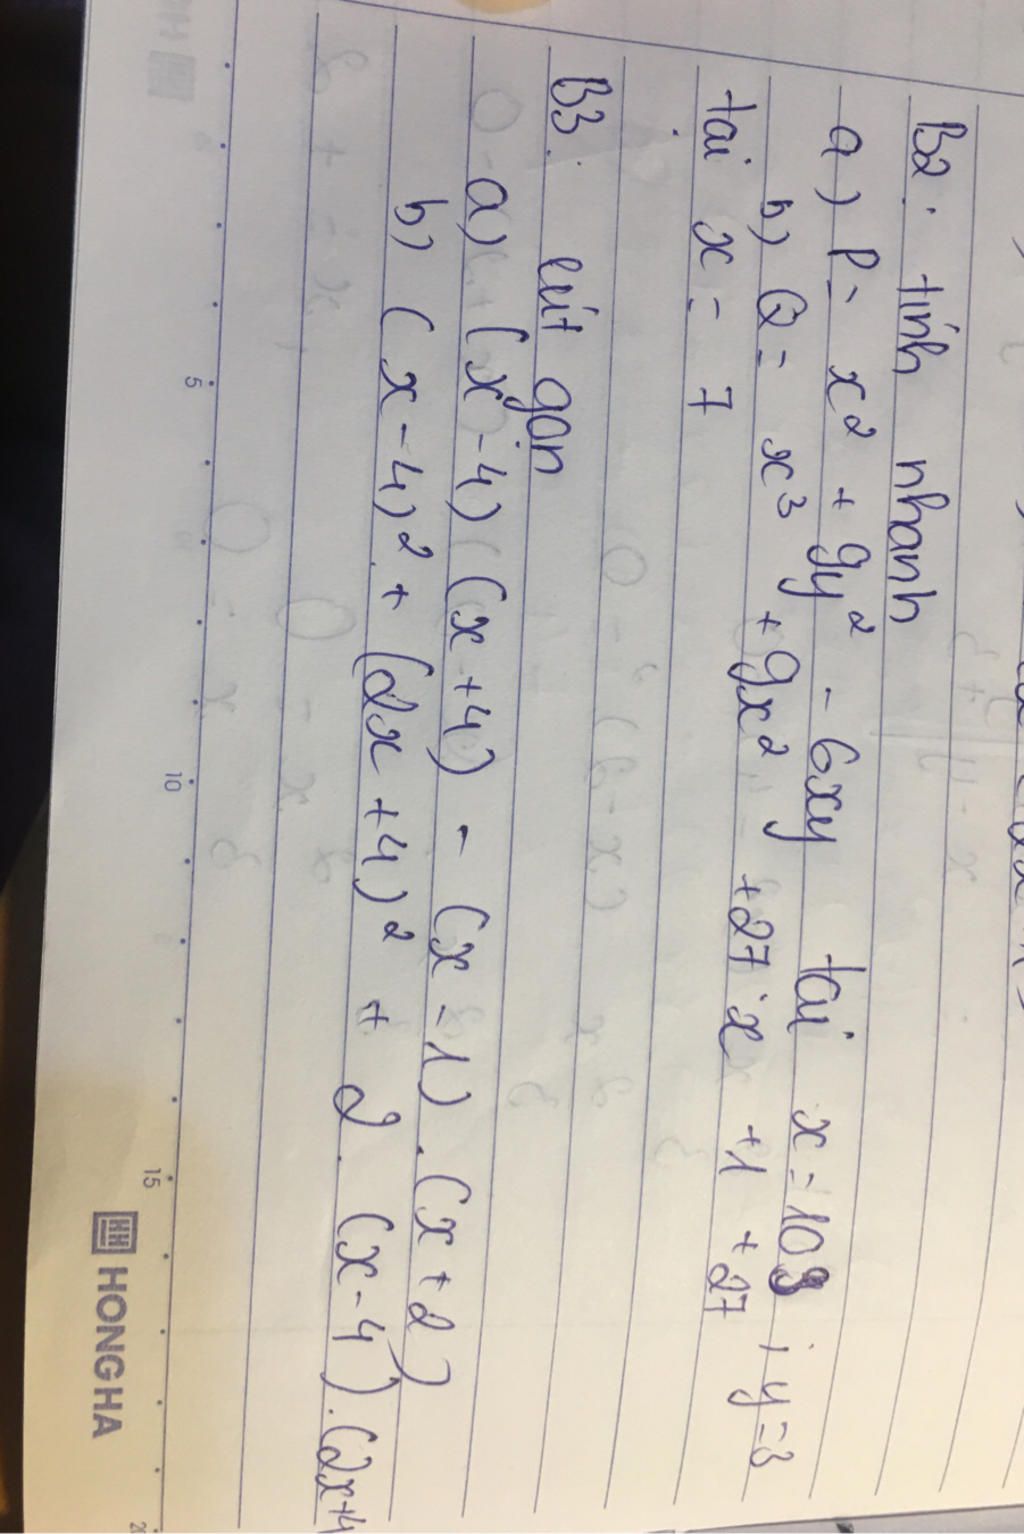 B2: tính nhanh
a) P = x² + 9y² - 6xy tại x = 109 ; y = 3
b) Q = x³ + 9x² + 27x + 1 + 27
tại x = 7
B3: rút gọn
a) (x - 4)(x + 4) - (x - 1) . (x + 2)
b) (x - 4)² + (2x + 4)² + 2 . (x - 4) . (2x + 4
5 10 15
HONG HA